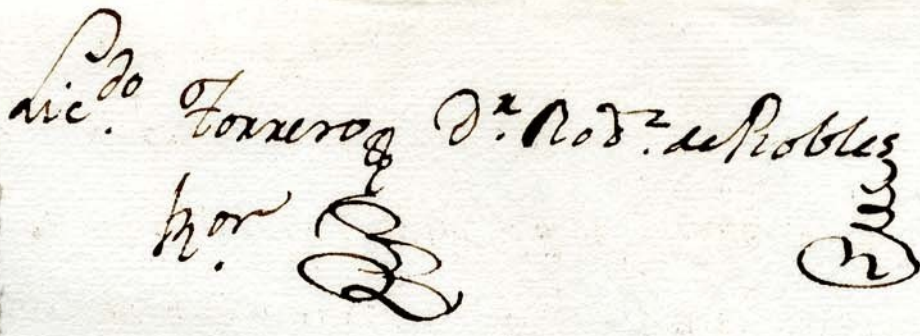 Lic.do Torrero D.r Rod.z de Robles